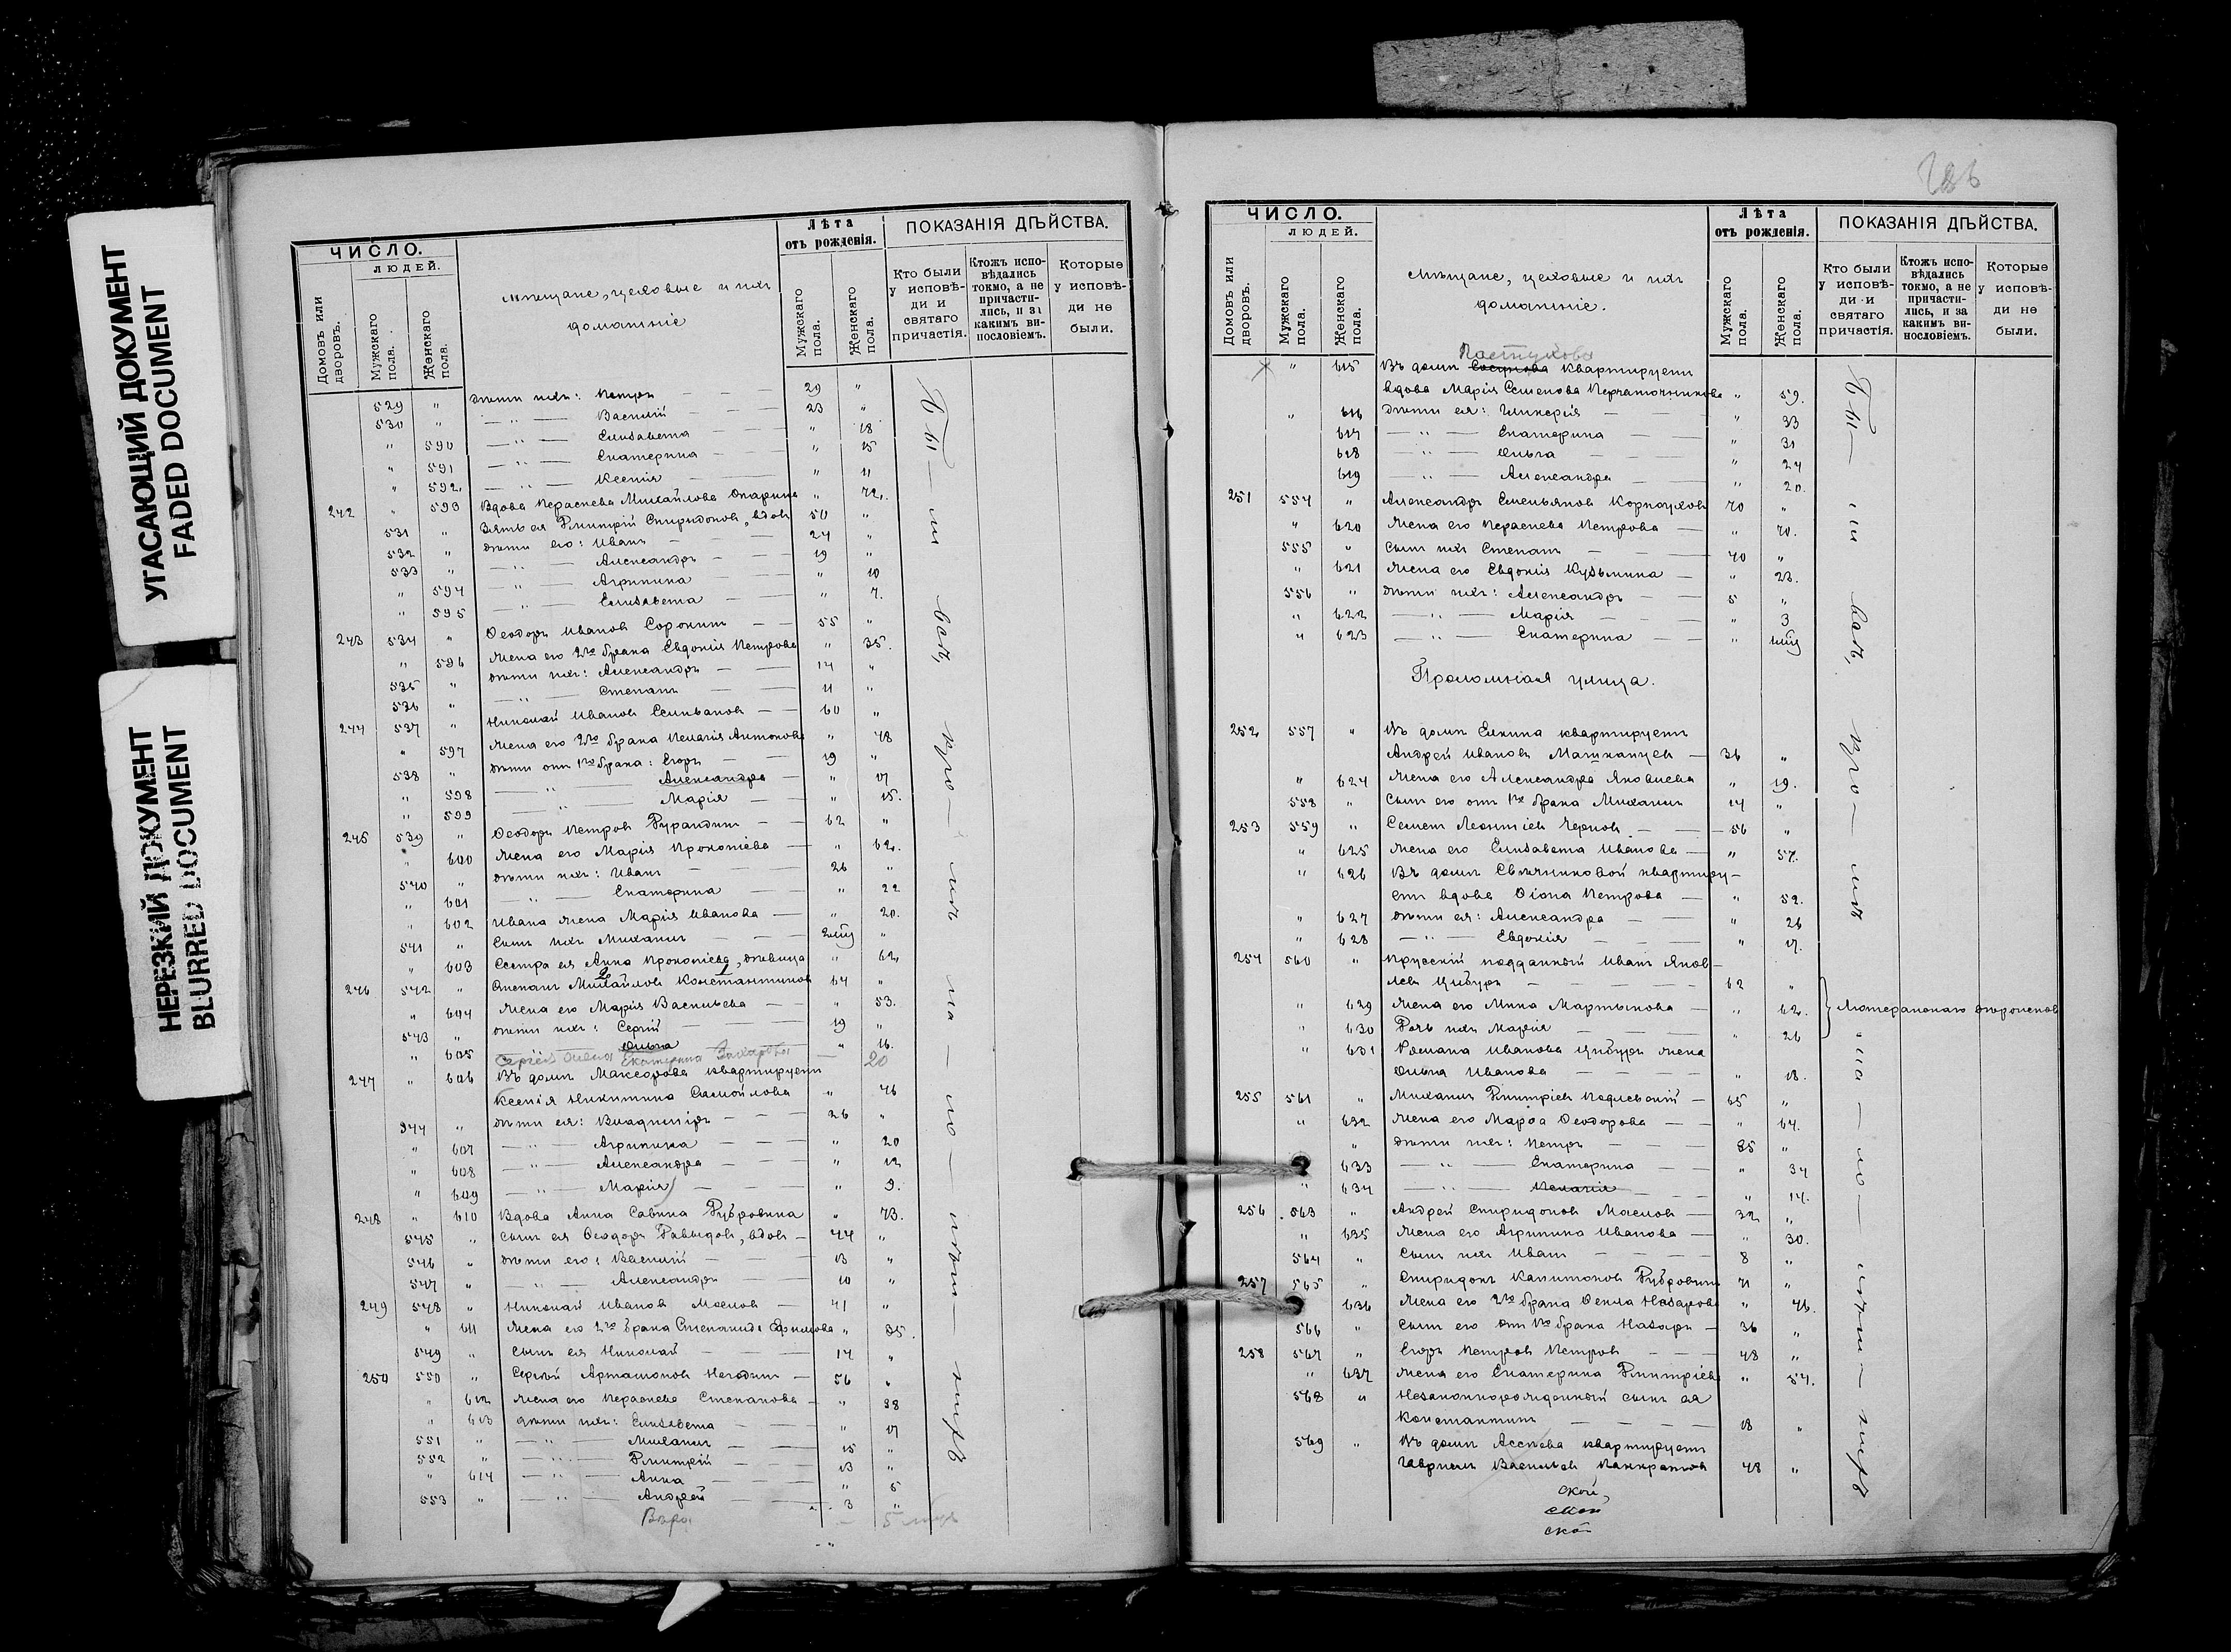 УГАСАЮЩИЙ ДОКУМЕНТ
FADED DOCUMENT
НЕРЕЗКИЙ ДОКУМЕНТ
BLURRED DOCUMENT
ЧИСЛО.
ЛЮДЕЙ.
Домовъ или дворовъ.
Мужскаго пола.
Женскаго пола.
Мѣщане, цеховые и ихъ
домашніе
Лѣта
отъ рожденія.
Мужскаго пола.
Женскаго пола.
ПОКАЗАНІЯ ДѢЙСТВА.
Кто были у исповѣди и святаго причастія.
Ктожъ исповѣдались токмо, а не причастились, и за какимъ винословіемъ.
Которые у исповѣди не были.
529 " дѣти ихъ: Петръ 29 "
530 " Василій 23 "
" 590 Елизавета " 18
" 591 Екатерина " 15
" 592 Ксенія " 11
242 " 593 Вдова Параскева Михайлова " 72.
531 " Зять ея Димитрій Спиридоновъ, вдовъ 50 "
532 " дѣти его: Иванъ 24 "
533 " Александръ 19 "
" 594 Агрипина " 10
" 595 Елизавета " 7.
243 534 " Ѳеодоръ Ивановъ Сорокинъ 55 "
" 596 Жена его 2го брака Евдокія Петрова " 35.
535 " дѣти ихъ: Александръ 14 "
536 " Степанъ 11 "
244 537 " Николай Ивановъ Селивановъ 60 "
" 597 Жена его 2го брака Пелагія Антонова " 48
538 " дѣти отъ 1го брака: Егоръ 19 "
" 598 Александра " 17
" 599 Марія " 15.
245 539 " Ѳеодоръ Петровъ 62 "
" 600 Жена его Марія Прокопіева " 62.
540 " дѣти ихъ: Иванъ 26 "
" 601 Екатерина " 22
" 602 Ивана жена Марія Иванова " 20.
541 " Сынъ ихъ Михаилъ "
" 603 Сестра ея Анна Прокопіева, дѣвица " 62
246 542 " Степанъ Михайловъ Константиновъ 64 "
" 604 Жена его Марія Васильева " 53.
543 " дѣти ихъ: Сергій 19 "
" 605 Ольга " 16.
Екатерина Захарова 20
247 " 606 Въ домѣ квартируетъ
Ксенія Никитина Самойлова " 46
544 " дѣти ея: Владиміръ 26 "
" 607 Агрипина " 20
" 608 Александра " 12
" 609 Марія " 9.
248 " 610 Вдова Анна Савина Дубровина " 73.
545 " сынъ ея Ѳеодоръ Давыдовъ, вдовъ 44 "
546 " дѣти его: Василій 13 "
547 " Александръ 10 "
249 548 " Николай Ивановъ Масловъ 41 "
" 611 Жена его 2го брака Степанида Ефимова " 35.
549 " сынъ ея Николай 14 "
250 550 " Сергѣй Артамоновъ 56 "
" 612 Жена его Параскева Степанова " 38
" 613 дѣти ихъ: Елизавета " 17
551 " Михаилъ 15 "
552 " Димитрій 13 "
" 614 Анна " 5
553 " Андрей 3 "
Вѣра
ЧИСЛО.
ЛЮДЕЙ.
Домовъ или дворовъ.
Мужскаго пола.
Женскаго пола.
Мѣщане, цеховые и ихъ
домашніе.
Лѣта
отъ рожденія.
Мужскаго пола.
Женскаго пола.
ПОКАЗАНІЯ ДѢЙСТВА.
Кто были у исповѣди и святаго причастія.
Ктожъ исповѣдались токмо, а не причастились, и за какимъ винословіемъ.
Которые у исповѣди не были.
Пастухова
" 615 Въ домѣ квартируетъ
вдова Марія Семенова Перчаточникова " 59.
" 616 дѣти ея: Гликерія " 33
617 Екатерина " 31
618 Ольга " 24
619 Александра " 20.
251 554 " Александръ Емельяновъ Корноуховъ 70 "
" 620 Жена его Параскева Петрова " 70.
555 " Сынъ ихъ Степанъ 40 "
" 621 Жена его Евдокія Кузьмина " 23.
556 " дѣти ихъ: Александръ 5 "
" 622 Марія " 3
" 623 Екатерина "
Проломская улица.
252 557 " Въ домѣ Елкина квартируетъ
Андрей Ивановъ 36 "
" 624 Жена его Александра Яковлева " 19.
558 " Сынъ его отъ 1го брака Михаилъ 14 "
253 559 " Семенъ Леонтіевъ Черновъ 56 "
" 625 Жена его Елизавета Иванова " 57.
" 626 Въ домѣ Свѣчниковой квартиру-
етъ вдова Ѳіона Петрова " 52.
" 627 дѣти ея: Александра " 26
" 628 Евдокія " 17.
254 560 " Прусскій подданный Иванъ Яков-
левъ Цибуръ 62 "
" 629 Жена его Минна Мартынова " 62.
Лютеранскаго
" 630 Дочь ихъ Марія " 26
" 631 Романа Иванова Цибуръ жена
Ольга Иванова " 18.
255 561 " Михаилъ Димитріевъ 65 "
" 632 Жена его Марѳа Ѳеодорова " 64.
" дѣти ихъ: Петръ 35 "
633 Екатерина " 34
" 634 Пелагія " 14.
256 563 " Андрей Спиридоновъ Масловъ 32 "
" 635 Жена его Агрипина Иванова " 30.
564 " Сынъ ихъ Иванъ 8 "
257 565 " Спиридонъ Капитоновъ Дубровинъ 71 "
636 Жена его 2го брака Ѳекла Назарова " 46.
566 " Сынъ его отъ 1го брака Назаръ 36 "
258 567 " Егоръ Петровъ Петровъ 48 "
" 637 Жена его Екатерина Димитріева " 54.
568 " Незаконнорожденный сынъ ея
Константинъ 18 "
569 " Въ домѣ квартируетъ
Гавріилъ Васильевъ Панкратовъ 48 "